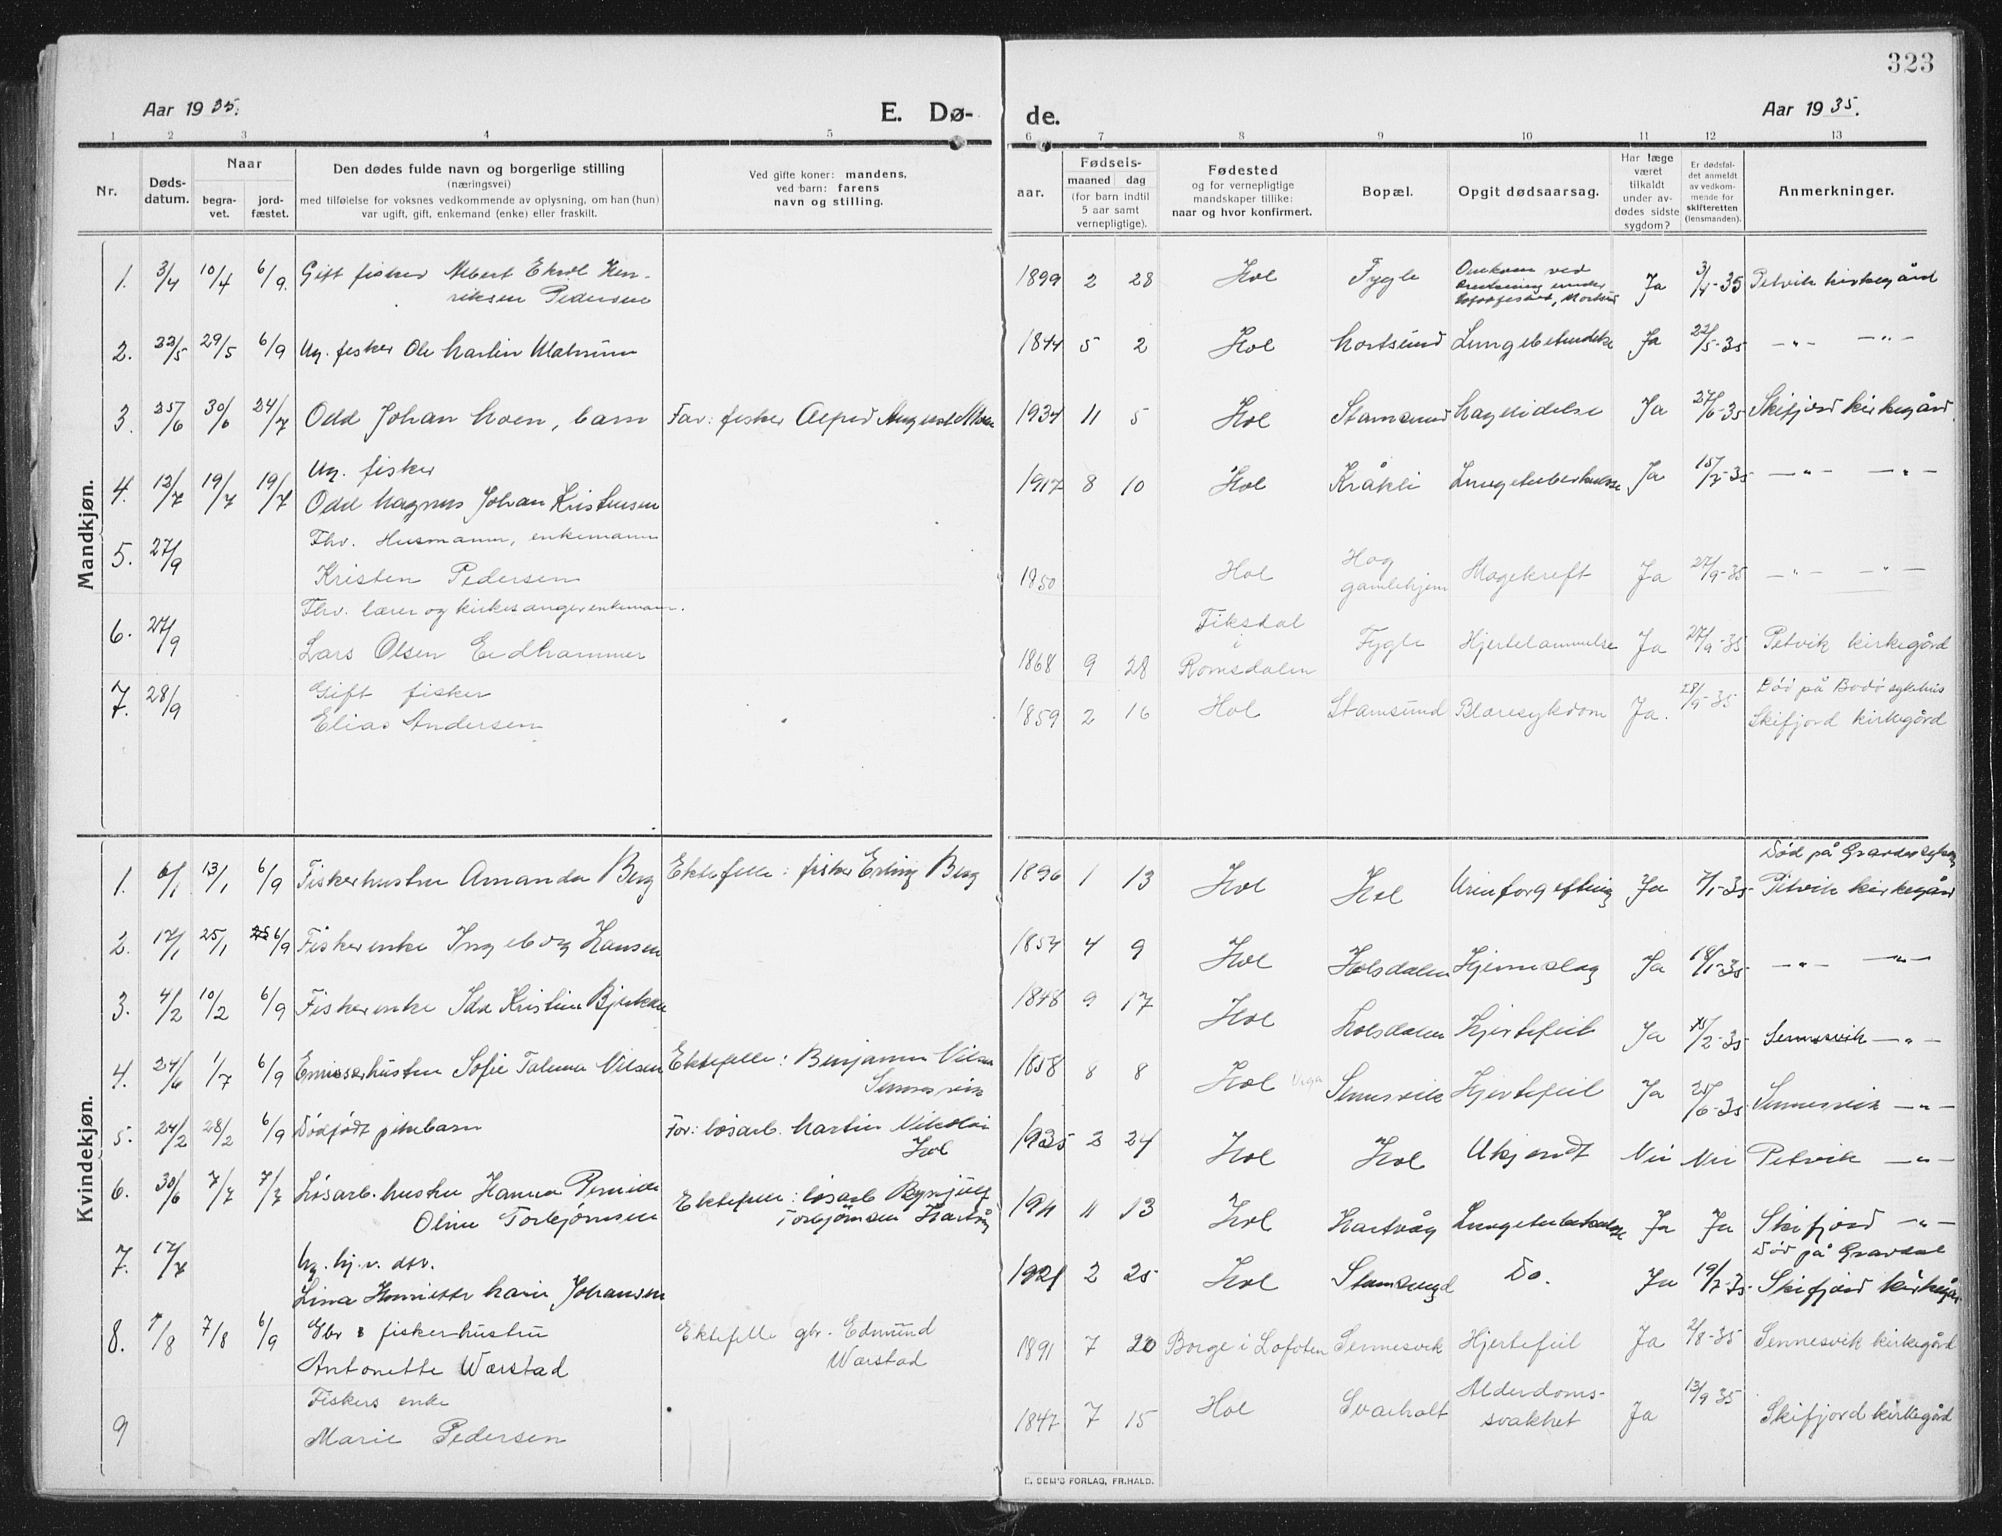 323
Aar 1935.
E. Dø-
de.
Aar 1935.
1 2 3 4 5 6 7 8 9 10 11 12 13
Nr.
Døds-
datum.
Naar
begra-
vet.
jord-
fæstet.
Den dødes fulde navn og borgerlige stilling
(næringsvei)
med tilføielse for voksnes vedkommende av oplysning, om han (hun)
var ugift, gift, enkemand (enke) eller fraskilt.
Ved gifte koner: mandens,
ved barn: farens
navn og stilling.
Fødsels-
aar.
maaned dag
(for barn indtil
5 aar samt
vernepligtige).
Fødested
og for vernepligtige
mandskaper tillike:
naar og hvor konfirmert.
Bopæl.
Opgit dødsaarsag.
Har læge
været
tilkaldt
under av-
dødes sidste
sygdom?
Er dødsfal-
det anmeldt
av vedkom-
mende for
skifteretten
(lensmanden).
Anmerkninger.
Mandkjøn.
1. 3/4 10/4 6/9. Gift fisker Albert Hen-
riksen Pedersen
1899 2 28 Hol Fygle Omkom ved
Ja 3/4-35 Petvik kirkegård
2. 22/5 29/5 6/9 Ug. fisker Ole Martin
1844 5 2 Hol Mortsund Lungebetendelse Ja 22/5-35 —"— —"—
3. 25/6 30/6 24/7 Odd Johan Moen, barn Far: fisker Alfred August Moen
1934 11 5 Hol Stamsund Magelidelse Ja 27/6-35 Skifjord kirkegård
4. 13/7 19/7 19/7 Ug. fisker
Odd Magnus Johan Kristensen
1917 8 10 Hol Kråkli Lungetuberkulose Ja 15/7-35 —"— —"—
5. 27/9 Fhv. Husmann, enkemann
Kristen Pedersen
1850 Hol Hag
gamlehjem Magekreft Ja 27/9-35 —"— —"—
6. 27/9 Fhv. lærer og kirkesanger enkemann.
Lars Olsen Eidhammer
1868 9 28 Fiksdal
i
Romsdalen Fygle Hjertelammelse Ja 27/9-35 Petvik kirkegård
7. 28/9 Gift fisker
Elias Andersen
1859 2 16 Hol Stamsund Blæresykdom Ja. 28/9-35 Død på Bodø sykehus
Skifjord kirkegård
Kvindekjøn.
1. 6/1 13/1 6/9 Fiskerhustru Amanda Berg Ektefelle: fisker Erling Berg
1896 1 13 Hol Hol Urinforgiftning Ja 7/1-35 Død på Gravdal
Petvik kirkegård
2. 17/1 25/1 6/9 Fiskerenke Ingeborg Hansen
1854 4 9 Hol Holsdalen Hjerneslag Ja 18/1-35 —"— —"—
3. 4/2 10/2 6/9 Fiskerenke Ida Kristine
1848 9 17 Hol Holsdalen Hjertefeil Ja /2-35 Sennesvik —"—
4. 24/6 1/7 6/9 Emissærhustru Sofie Nilsen Ektefelle: Benjamin Nilsen
Sennesvik
1858 8 8 Hol Sennesvik Hjertefeil Ja 25/6-35 Sennesvik —"—
5. 24/2 28/2 6/9 Dødfødt pikebarn Far: løsarb. Martin Nikolai
Hol
1935 2 24 Hol Hol Ukjendt Nei Nei Petvik —"—
6. 30/6 7/7 7/7 Løsarb. hustru Hanna Pernille
Oline Torbjørnsen Ektefelle: løsarb Brynjulf
Torbjørnsen Hartvåg
1911 11 13 Hol Hartvåg Lungetuberkulose Ja Ja Skifjord —"—
7. 17/7 Ug. hj. v. dtr.
Lina Henriette Marie Johansen
1921 2 25 Hol Stamsund Do. Ja 19/7-35 Død på Gravdal
Skifjord kirkegård
8. 1/8 7/8 6/9 Gbr & fiskerhustru
Antonette Wærstad Ektefelle gbr. Edmund
Wærstad
1891 7 20 Borge i Lofoten Sennesvik Hjertefeil Ja 2/8-35 Sennesvik kirkegård
9 Fiskers enke
Marie Pedersen
1847 7 15 Hol Svarholt Alderdoms-
svakhet Ja 13/9 35 Skifjord kirkegård
E. SEM'S FORLAG, FR.HALD.